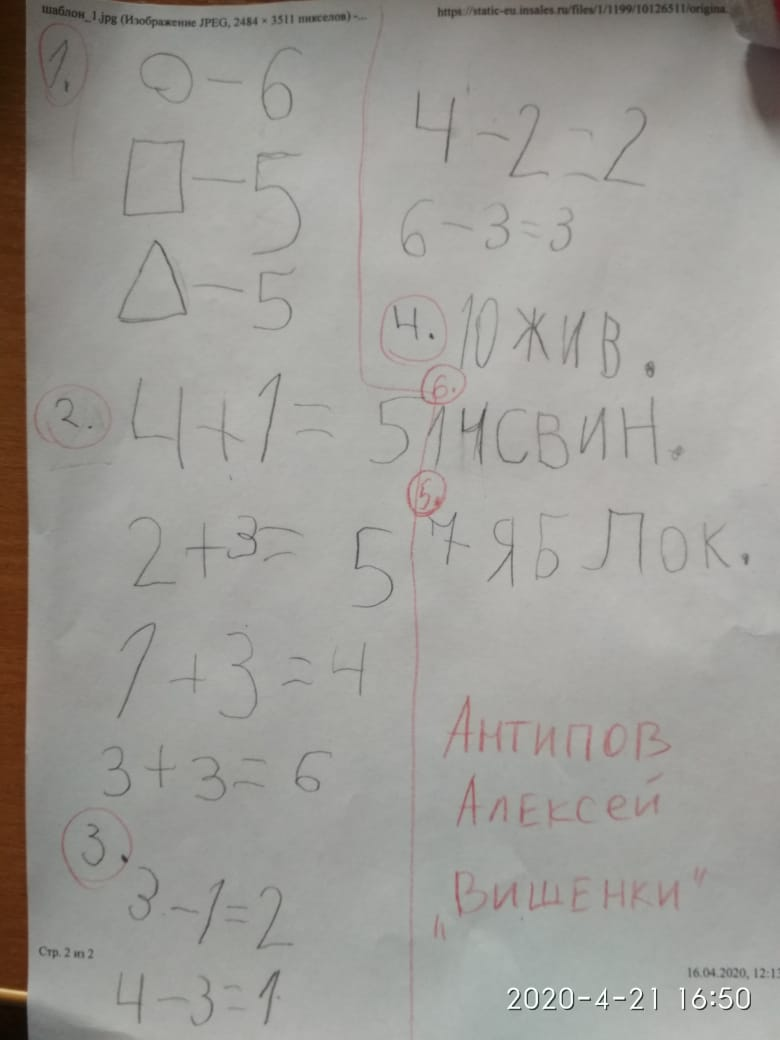 шаблон_1.jpg (Изображение JPEG, 2484 × 3511 пикселов) -...
https://static-eu.insales.ru/files/1/1199/10126511/origina.
1.
○ - 6
□ - 5
△ - 5
2.
4+1= 5
2+3= 5
1+3=4
3+3=6
3.
3-1=2
4-3=1
4-2=2
6-3=3
4. 10 ЖИВ.
6. 14 СВИН.
5. 7 ЯБЛОК.
Антипов
Алексей
„Вишенки"
Стр. 2 из 2
16.04.2020, 12:13
2020-4-21 16:50